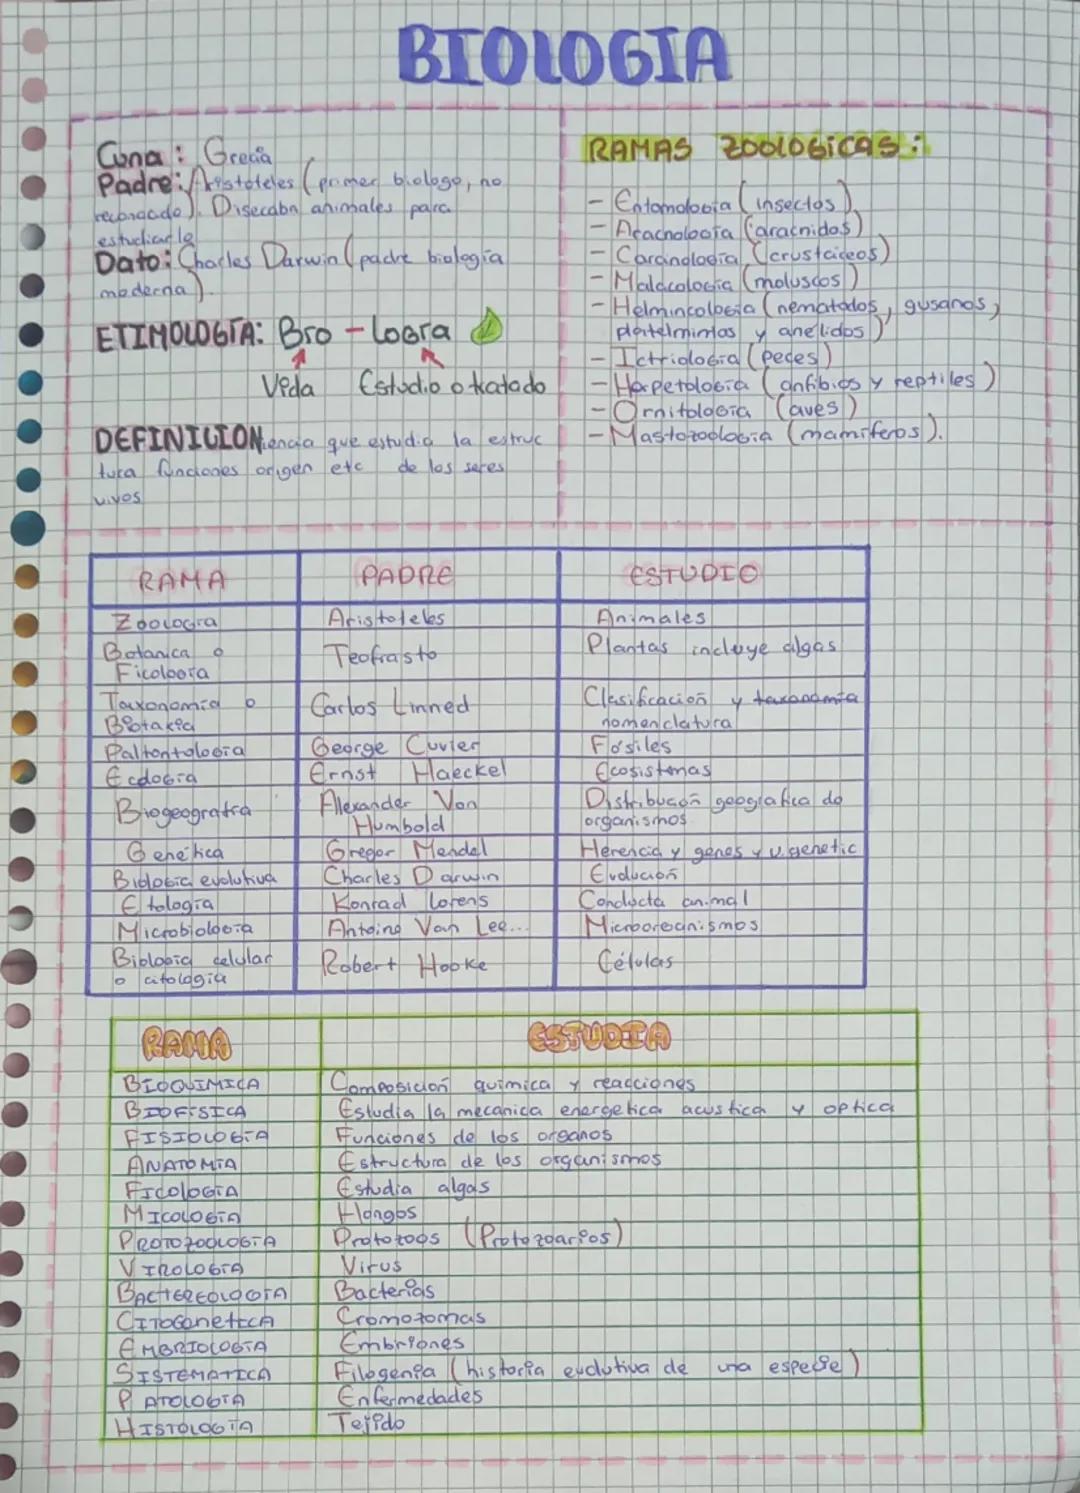 BIOLOGIA
Cuna: Grecia
Padre: Aristoteles (primer biologo, no
reconocido). Disecaba animales para
estudiarle
Dato: Charles Darwin (padre biologia
moderna).
ETIMOLOGÍA: Bio - Logia
Vida Estudio o tratado
DEFINICION: Ciencia que estudia la estruc
tura funciones origen etc de los seres
vivos
RAMAS ZOOLOGICAS:
- Entomologia (insectos).
- Aracnologia (aracnidos)
- Carcinologia (crustaceos)
- Malacologia (moluscos)
- Helmincologia (nematodos, gusanos,
platelmintos y anelidos)
- Ictriologia (peces)
- Herpetologia (anfibios y reptiles)
- Ornitologia (aves)
- Mastozoologia (mamiferos).
RAMA PADRE ESTUDIO
Zoologia Aristoteles Animales
Botanica o
Ficologia Teofrasto Plantas incluye algas
Taxonomia o
Biotaxia Carlos Linned Clasificacion y taxonomia
nomenclatura
Paltontologia George Cuvier Fosiles
Ecologia Ernst Haeckel Ecosistemas
Biogeografia Alexander Von
Humbold Distribucon geografica de
organismos
Genetica Gregor Mendel Herencia y genes y v. genetic
Biologia evolutiva Charles Darwin Evolucion
Etologia Konrad Lorens Conducta animal
Microbiologia Antoino Van Lee... Microorganismos
Biologia celular
o citologia Robert Hooke Células
RAMA ESTUDIA
BIOQUIMICA Composicion quimica y reacciones
BIOFISICA Estudia la mecanica energetica acustica y optica
FISIOLOGIA Funciones de los organos
ANATOMIA Estructura de los organismos
FICOLOGIA Estudia algas
MICOLOGIA Hongos
PROTOZOOLOGIA Protozoos (Protozoarios)
VIROLOGIA Virus
BACTEREOLOGIA Bacterias
CITOGENETICA Cromozomas
EMBRIOLOGIA Embriones
SISTEMATICA Filogenia (historia evolutiva de una especie)
PATOLOGIA Enfermedades
HISTOLOGIA Tejido